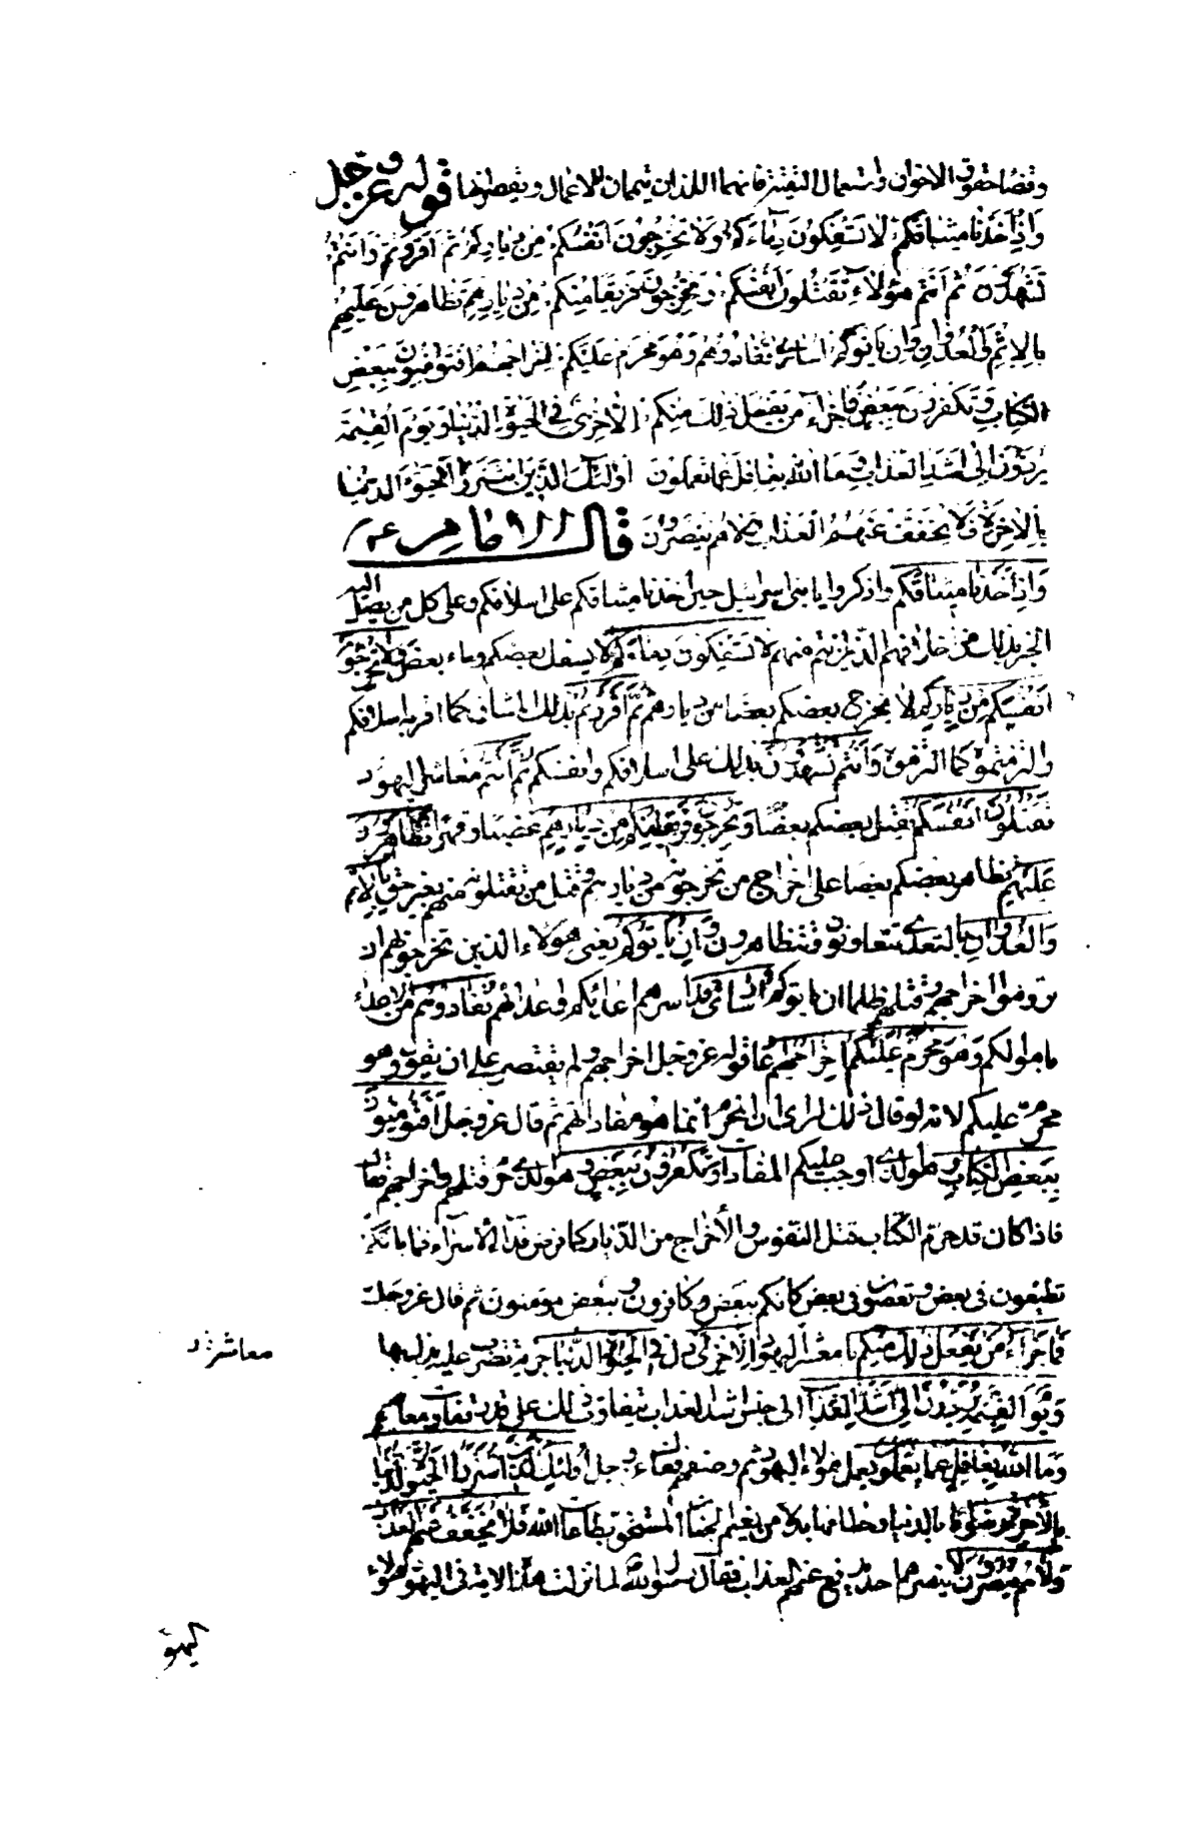 وقضاء حقوق الاخوان واستعمال التقية فانهما اللذان يتمان الاعمال ويقصرانها قوله عزوجل
وَاِذْ اَخَذْنا ميثاقَكُمْ لا تَسْفِكُونَ دِماءَكُمْ وَلا تُخْرِجُونَ اَنْفُسَكُمْ مِنْ دِيارِكُمْ ثُمَّ اَقْرَرْتُمْ وَاَنْتُمْ
تَشْهَدُونَ ثُمَّ اَنْتُمْ هؤُلاءِ تَقْتُلُونَ اَنْفُسَكُمْ وَتُخْرِجُونَ فَريقًا مِنْكُمْ مِنْ دِيارِهِمْ تَظاهَرُونَ عَلَيْهِمْ
بِالاِثْمِ وَالْعُدْوانِ وَاِنْ يَاْتُوكُمْ اُسارى تُفادُوهُمْ وَهُوَ مُحَرَّمٌ عَلَيْكُمْ اِخْراجُهُمْ اَفَتُؤْمِنُونَ بِبَعْضِ
الْكِتابِ وَتَكْفُرُونَ بِبَعْضٍ فَما جَزاءُ مَنْ يَفْعَلُ ذلِكَ مِنْكُمْ اِلاّ خِزْىٌ فِى الْحَيوةِ الدُّنْيا وَيَوْمَ الْقِيمَةِ
يُرَدُّونَ اِلى اَشَدِّ الْعَذابِ وَمَا اللهُ بِغافِلٍ عَمّا تَعْمَلُونَ اُولئِكَ الَّذينَ اشْتَرَوُا الْحَيوةَ الدُّنْيا
بِالاخِرَةِ فَلا يُخَفَّفُ عَنْهُمُ الْعَذابُ وَلا هُمْ يُنْصَرُونَ قال الامام ع
وَاِذْ اَخَذْنا ميثاقَكُمْ واذكروا يا بنى اسرائيل حين اخذنا ميثاقكم على اسلافكم وعلى كل من يصل اليه
الخبر بذلك من اخلافهم الذين انتم منهم لا تَسْفِكُونَ دِماءَكُمْ لا يسفك بعضكم دماء بعض وَلا تُخْرِجُونَ
اَنْفُسَكُمْ مِنْ دِيارِكُمْ لا يخرج بعضكم بعضا من ديارهم ثُمَّ اَقْرَرْتُمْ بذلك الميثاق كما اقر به اسلافكم
والتزمتموه كما التزموه وَاَنْتُمْ تَشْهَدُونَ بذلك على اسلافكم وانفسكم ثُمَّ اَنْتُمْ معاشر اليهود
تَقْتُلُونَ اَنْفُسَكُمْ يقتل بعضكم بعضًا وَتُخْرِجُونَ فَريقًا مِنْكُمْ مِنْ دِيارِهِمْ غضبا وقهرا تَظاهَرُونَ
عَلَيْهِمْ يظاهر بعضكم بعضا على اخراج من تخرجونه من ديارهم وقتل من تقتلونه منهم بغير حق بِالاِثْمِ
وَالْعُدْوانِ بالتعدى تتعاونون وتتظاهرون وَاِنْ يَاْتُوكُمْ يعنى هؤلاء الذين تخرجونهم ان
تروموا اخراجهم وقتلهم ظلما ان ياتوكم اُسارى قد اسرهم اعدائكم واعدائهم تُفادُوهُمْ من الاعداء
باموالكم وَهُوَ مُحَرَّمٌ عَلَيْكُمْ اِخْراجُهُمْ اعاد قوله عزوجل اخراجهم ولم يقتصر على ان يقول وهو
محرم عليكم لانه لو قال ذلك لراى ان المحرم انما هو مفاداتهم ثم قال عزوجل اَفَتُؤْمِنُونَ
بِبَعْضِ الْكِتابِ وهو الذى اوجب عليكم المفادات وَتَكْفُرُونَ بِبَعْضٍ وهو الذى حرم قتلهم واخراجهم فقال
فاذا كان قد حرم الكتاب قتل النفوس والاخراج من الديار كما فرض فداء الاسراء فما بالكم
تطيعون فى بعض وتعصون فى بعض كانكم ببعض كافرون وببعض مؤمنون ثم قال عزوجل
فَما جَزاءُ مَنْ يَفْعَلُ ذلِكَ مِنْكُمْ يا معشر اليهود اِلاّ خِزْىٌ ذل فِى الْحَيوةِ الدُّنْيا جزية تضرب عليه يذل بها
معاشر
وَيَوْمَ الْقِيمَةِ يُرَدُّونَ اِلى اَشَدِّ الْعَذابِ الى جنس اشد العذاب يتفاوت ذلك على قدر تفاوت معاصيهم
وَمَا اللهُ بِغافِلٍ عَمّا يَعْمَلُونَ يعمل هؤلاء اليهود ثم وصفهم فقال عزوجل اُولئِكَ الَّذينَ اشْتَرَوُا الْحَيوةَ الدُّنْيا
بِالاخِرَةِ رضوا بالدنيا وحطامها بدلا من نعيم الجنان المستحق بطاعات الله فَلا يُخَفَّفُ عَنْهُمُ الْعَذابُ
وَلا هُمْ يُنْصَرُونَ لا ينصرهم احد يدفع عنهم العذاب فقال رسول الله لما نزلت هذه الاية فى اليهود هؤلاء
اليهود